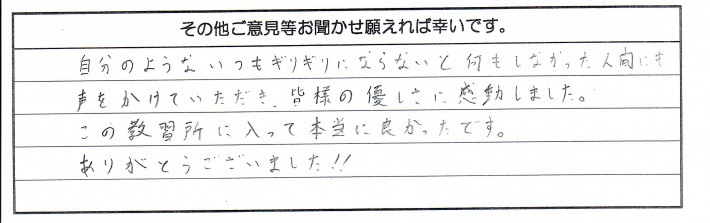 その他ご意見等お聞かせ願えれば幸いです。
自分のような いつもぎりぎりにならないと 何もしなかった人間にも
声をかけていただき、皆様の優しさに感動しました。
この教習所に入って本当に良かったです。
ありがとうございました!!